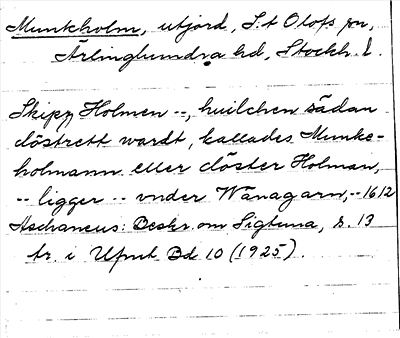 Munkholm, utjord, S:t Olofs sn,
Ärlinghundra hd, Stockh. l.
Skipp Holmen --, huilchen sädan
clöstrett wardt, kallades Munke-
holmann eller clöster Holman,
-- ligger -- vnder Wänagarn, -- 1612
Aschaneus: Beskr. om Sigtuna, s. 13
tr. i Ufmt Bd 10 (1925).